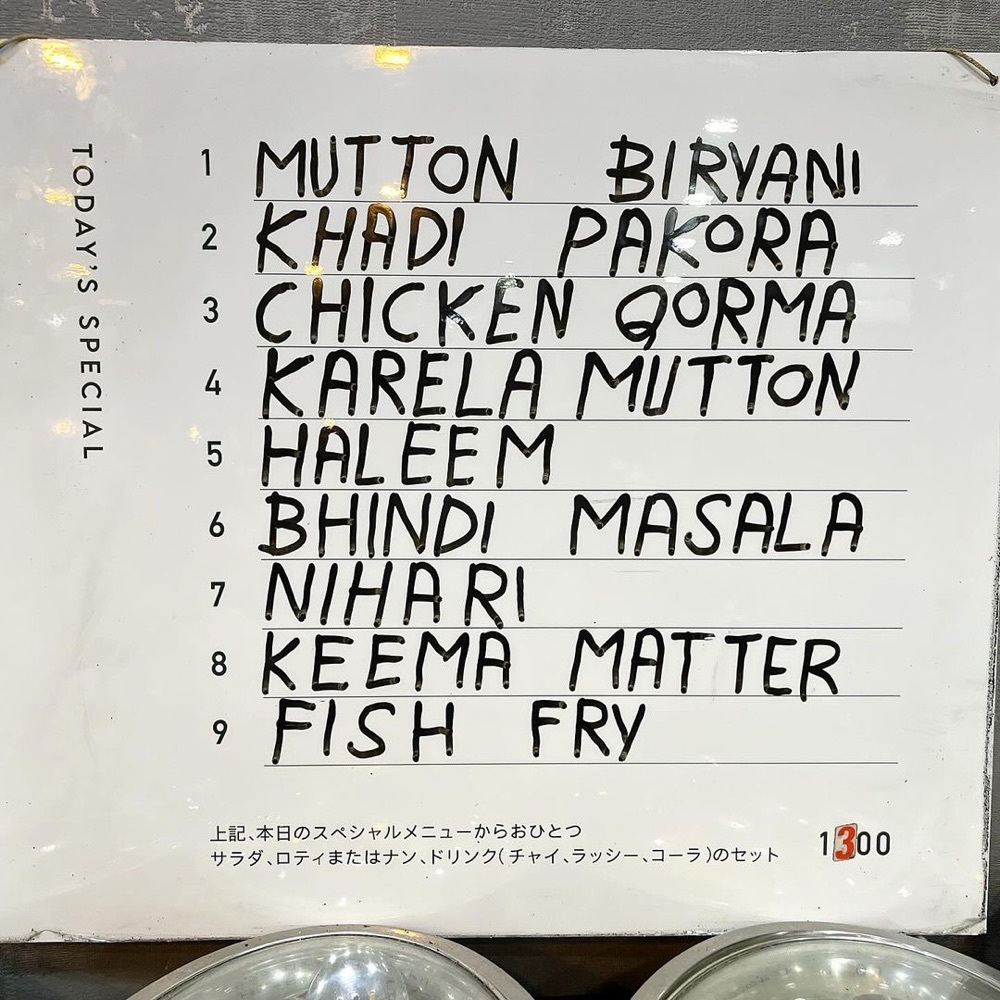 TODAY'S SPECIAL
1 MUTTON BIRYANI
2 KHADI PAKORA
3 CHICKEN QORMA
4 KARELA MUTTON
5 HALEEM
6 BHINDI MASALA
7 NIHARI
8 KEEMA MATTER
9 FISH FRY
上記、本日のスペシャルメニューからおひとつ
サラダ、ロティまたはナン、ドリンク(チャイ、ラッシー、コーラ)のセット 1300